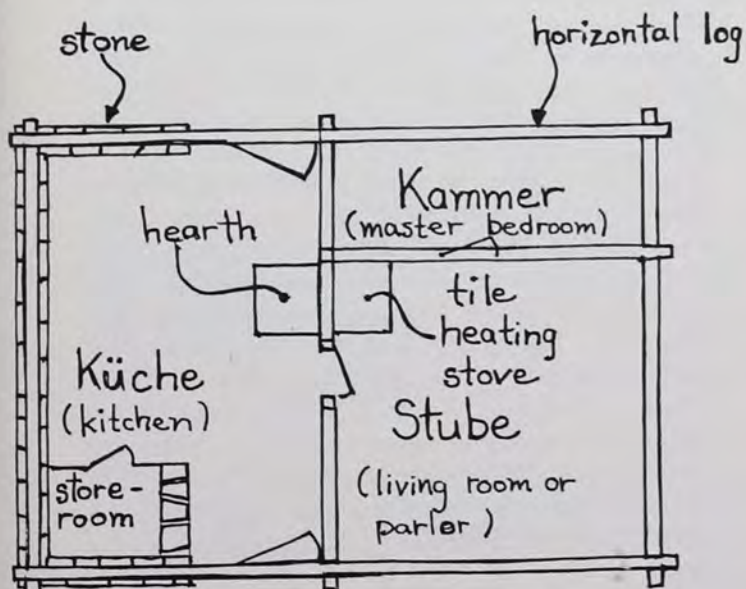 stone
horizontal log
Kammer
(master bedroom)
hearth
tile
heating
stove
Küche
(kitchen)
Stube
store-
room
(living room or
parlor)